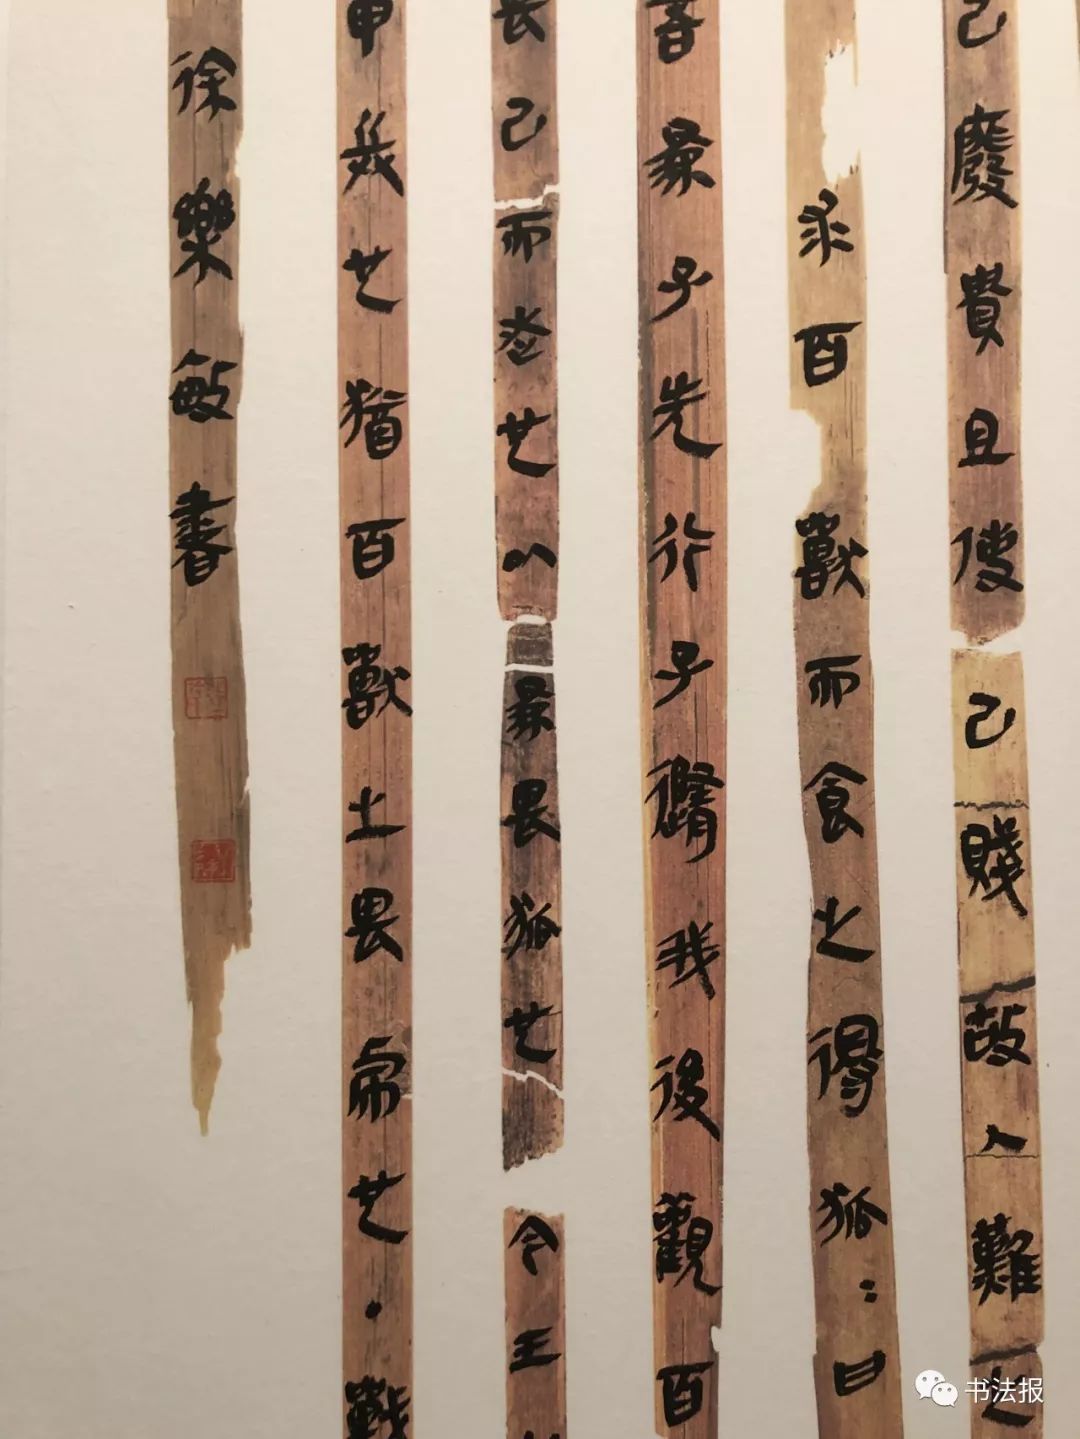 己廢貴且使己賤故人難之
求百獸而食之得狐：曰
吾爲子先行子隨我後觀百
畏己而走也以爲畏狐也今王
甲兵也猶百獸之畏虎也·戰
徐樂敏書
书法报